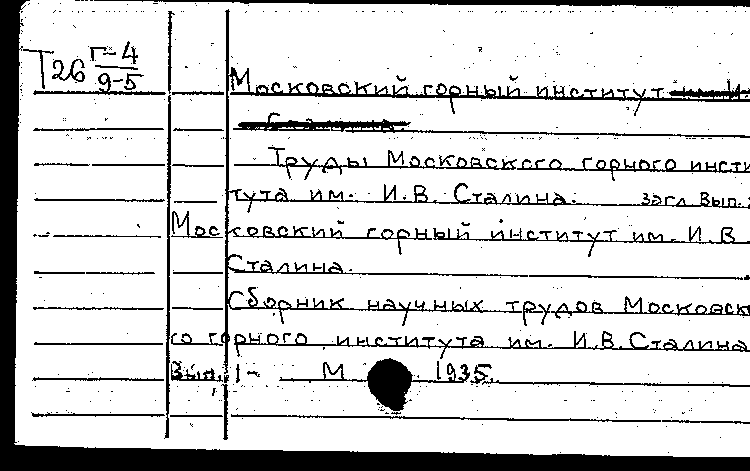 Т26 Г-4
9-5
Московский горный институт им. И.
Сталина.
Труды Московского горного инсти
тута им. И.В. Сталина. загл Вып.
Московский горный институт им. И.В
Сталина.
Сборник научных трудов Московск
го горного института им. И.В.Сталина
Вып. 1- М 1935.